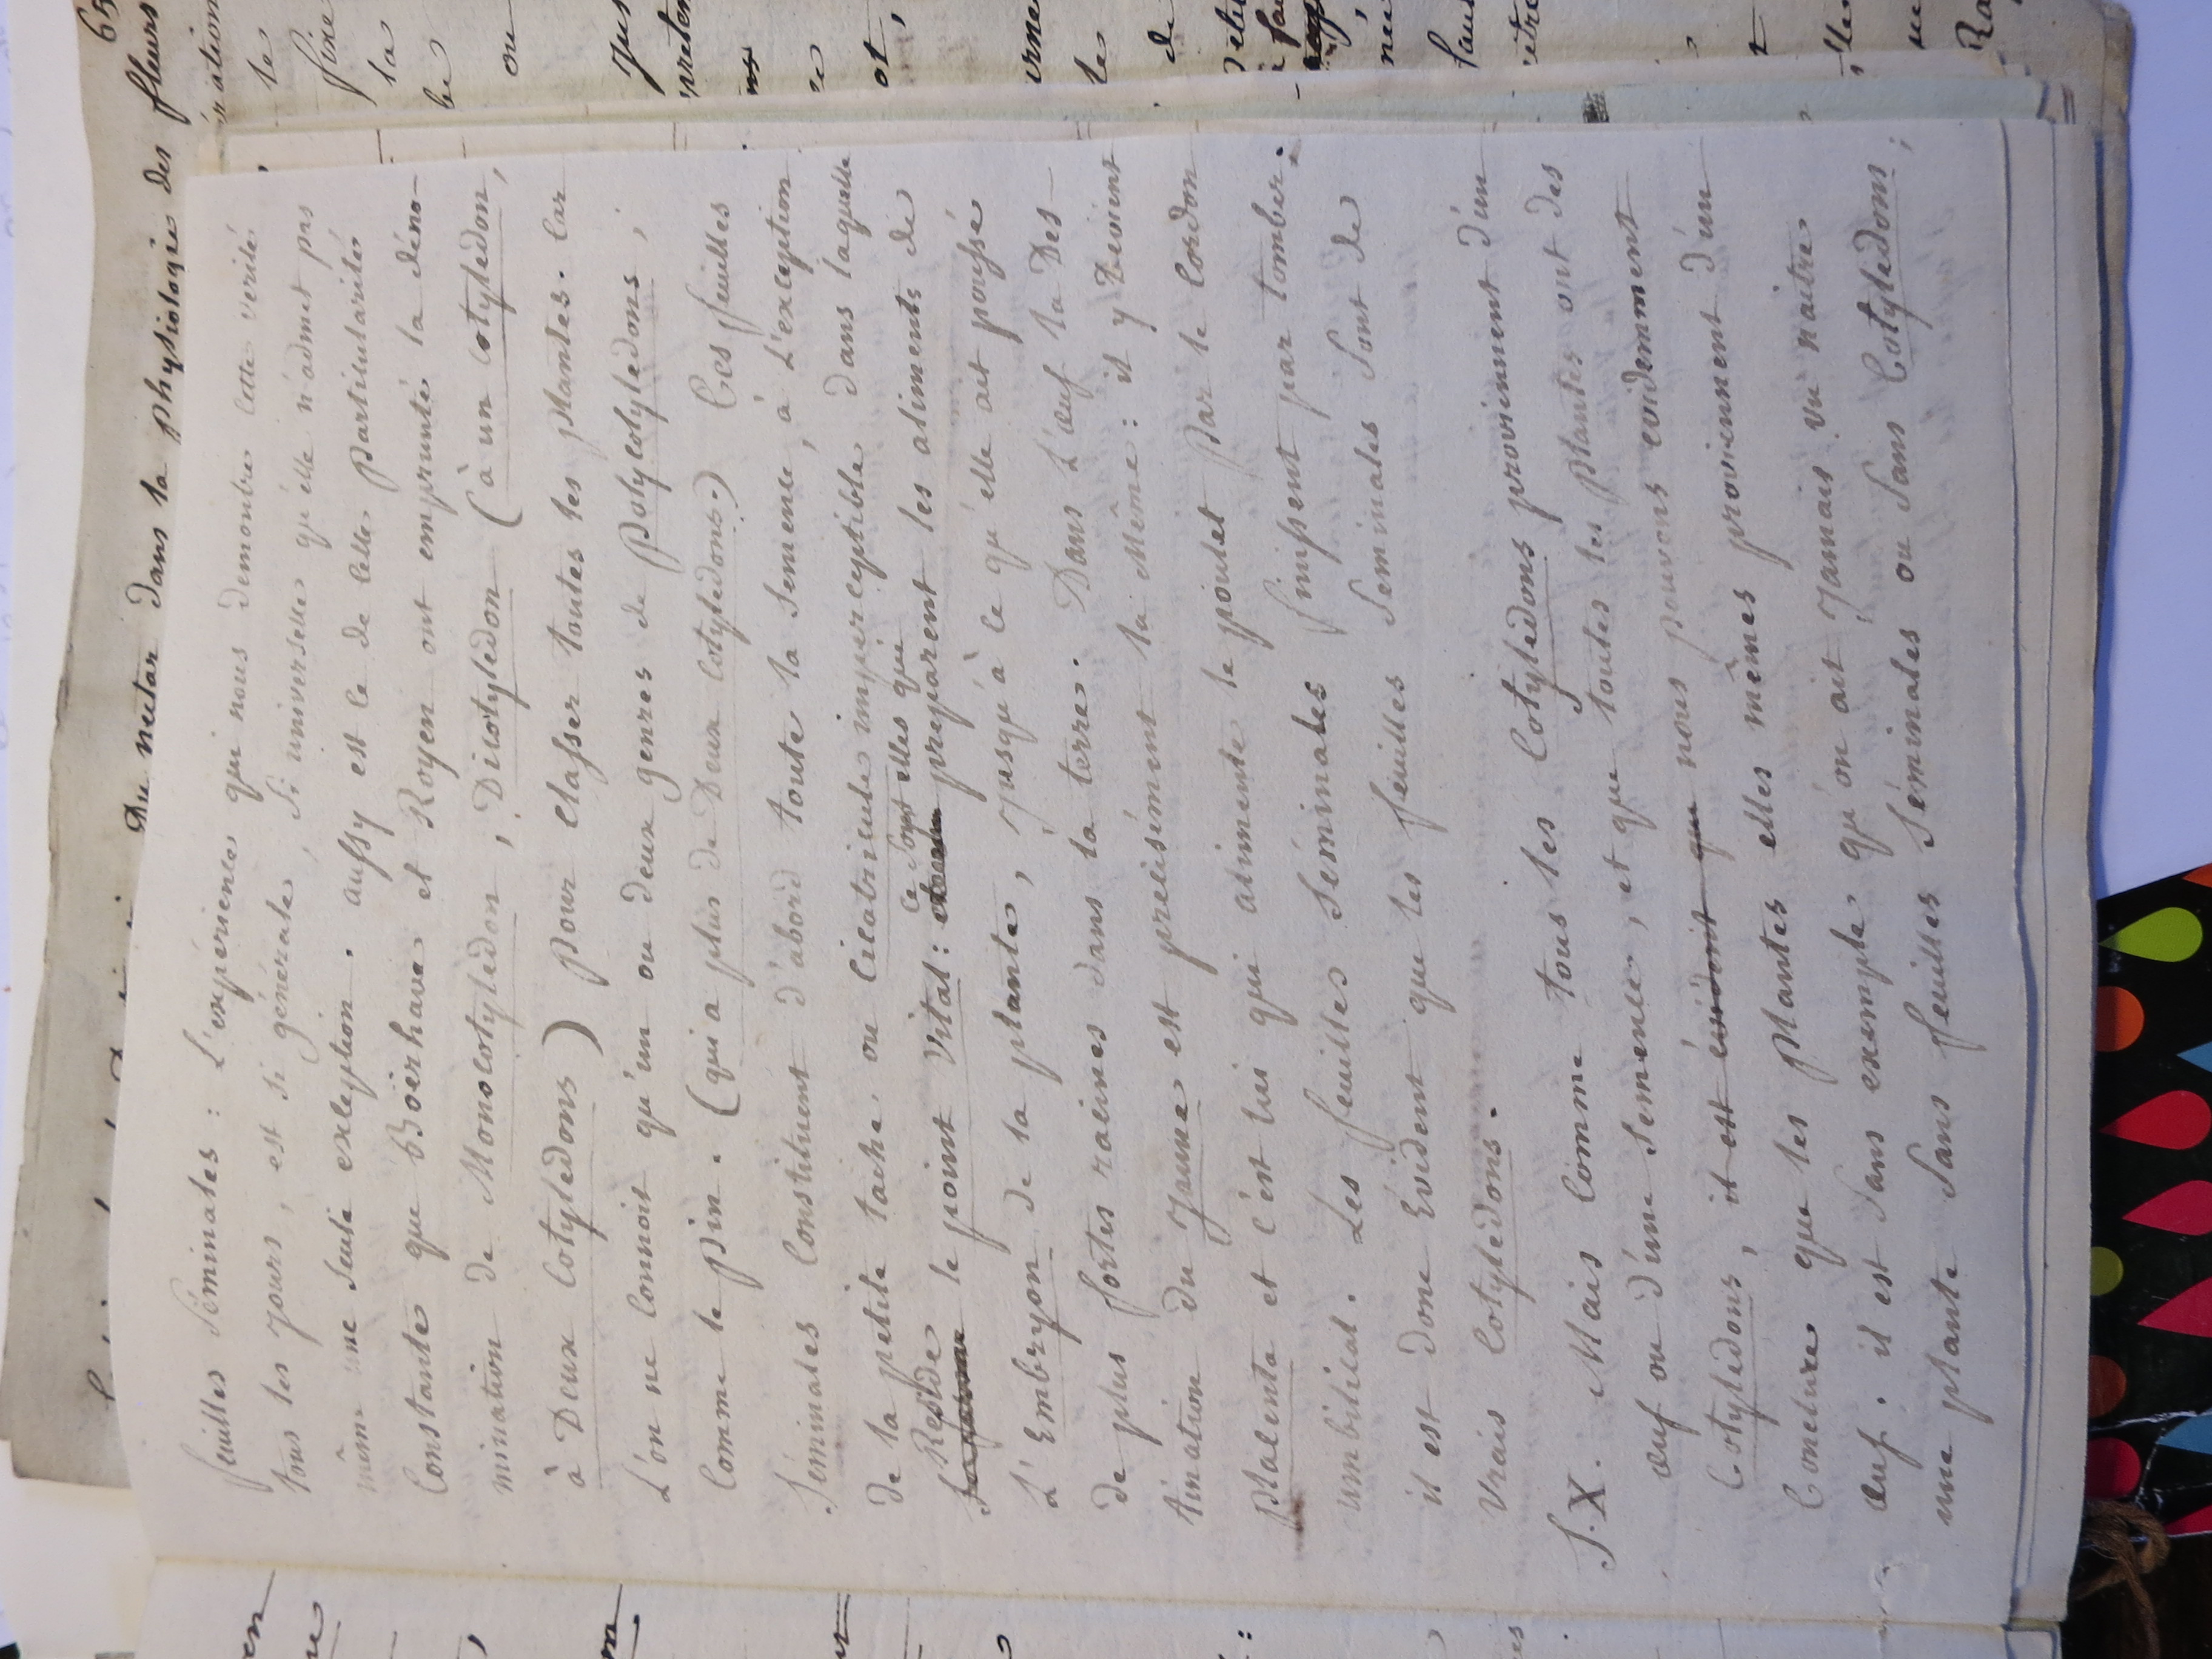 Du nectar dans la physiologie des fleurs
feuilles Séminales : L'expérience qui nous demontre cette verité
tous les jours, est si générale, Si universelle qu'elle n'admet pas
même une seule exception. aussy est ce de cette particularité
Constante que Böerhave et Royen ont emprunté la déno-
mination de Monocotyledon, Dicotyledon (à un Cotyledon,
à Deux Cotyledons) pour classer toutes les plantes. Car
L'on ne Connoit qu'un ou deux genres de Polycotyledons,
Comme le pin. (qui a plus de Deux Cotyledons.) Ces feuilles
Séminales Constituent d'abord toute la Semence, à L'exception
de la petite tache, ou Cicatricule imperceptible dans laquelle
Reside le point Vital : ce sont elles qui preparent les aliments de
L'Embryon de la plante, jusqu'à ce qu'elle ait poussé
de plus fortes racines dans la terre. Dans L'œuf la Des-
tination du Jaune est precisément la Même : il y Devient
Placenta et c'est lui qui alimente le poulet par le Cordon
umbilical. Les feuilles Séminales finissent par tomber.
il est donc Evident que les feuilles Seminales Sont de
Vrais Cotyledons.
§. X. Mais Comme tous les Cotyledons proviennent d'un
œuf ou d'une Semence, et que toutes les plantes ont des
Cotyledons, il est évident que nous pouvons evidemment
Conclure que les plantes elles mêmes proviennent d'un
œuf. il est Sans exemple qu'on ait Jamais vu naitre
une plante Sans feuilles Séminales ou Sans Cotyledons ;